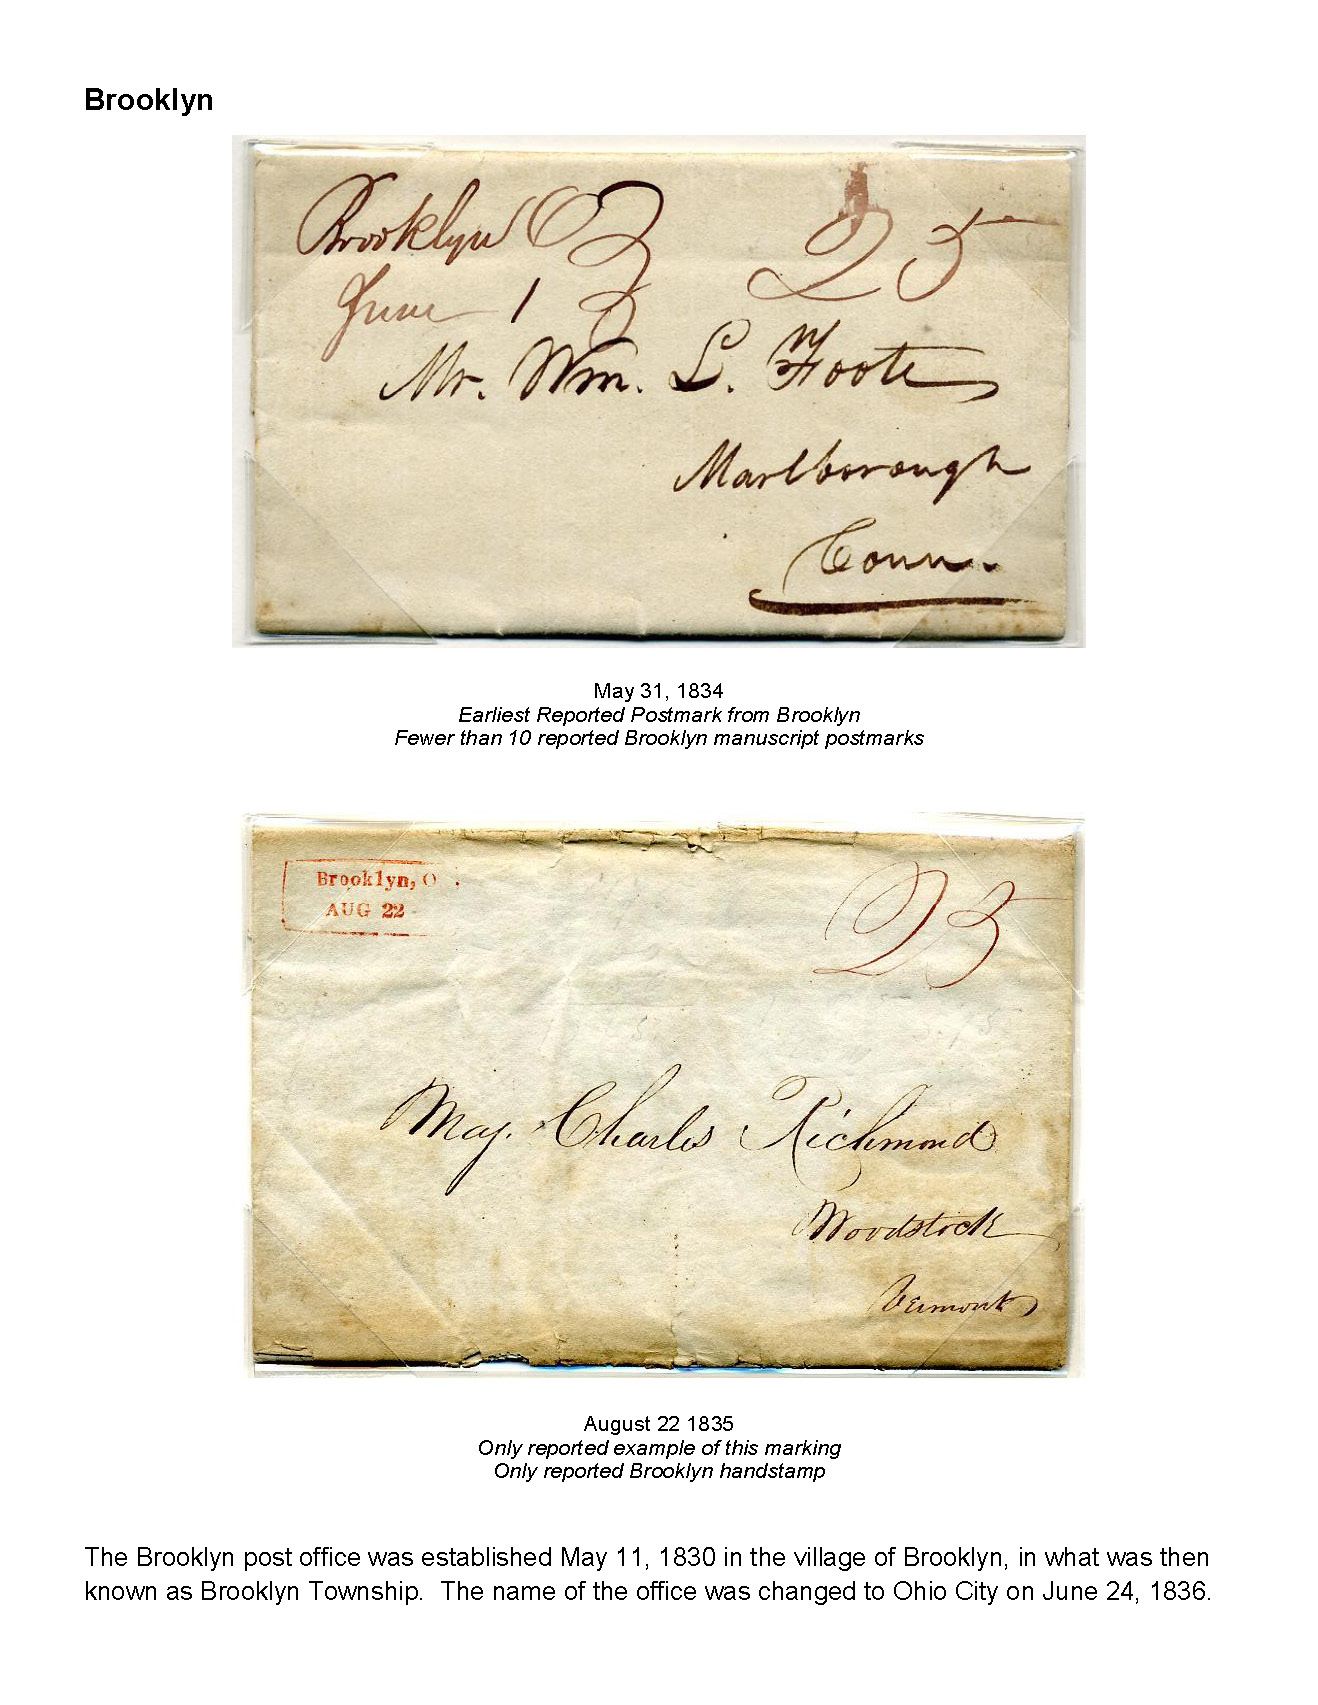 Brooklyn
Brooklyn O
25
June 1
Mr. Wm. L. Foote
Marlborough
Conn.
May 31, 1834
Earliest Reported Postmark from Brooklyn
Fewer than 10 reported Brooklyn manuscript postmarks
Brooklyn, O.
AUG 22
25
Maj. Charles Richmond
Woodstock
Vermont
August 22 1835
Only reported example of this marking
Only reported Brooklyn handstamp
The Brooklyn post office was established May 11, 1830 in the village of Brooklyn, in what was then
known as Brooklyn Township.  The name of the office was changed to Ohio City on June 24, 1836.